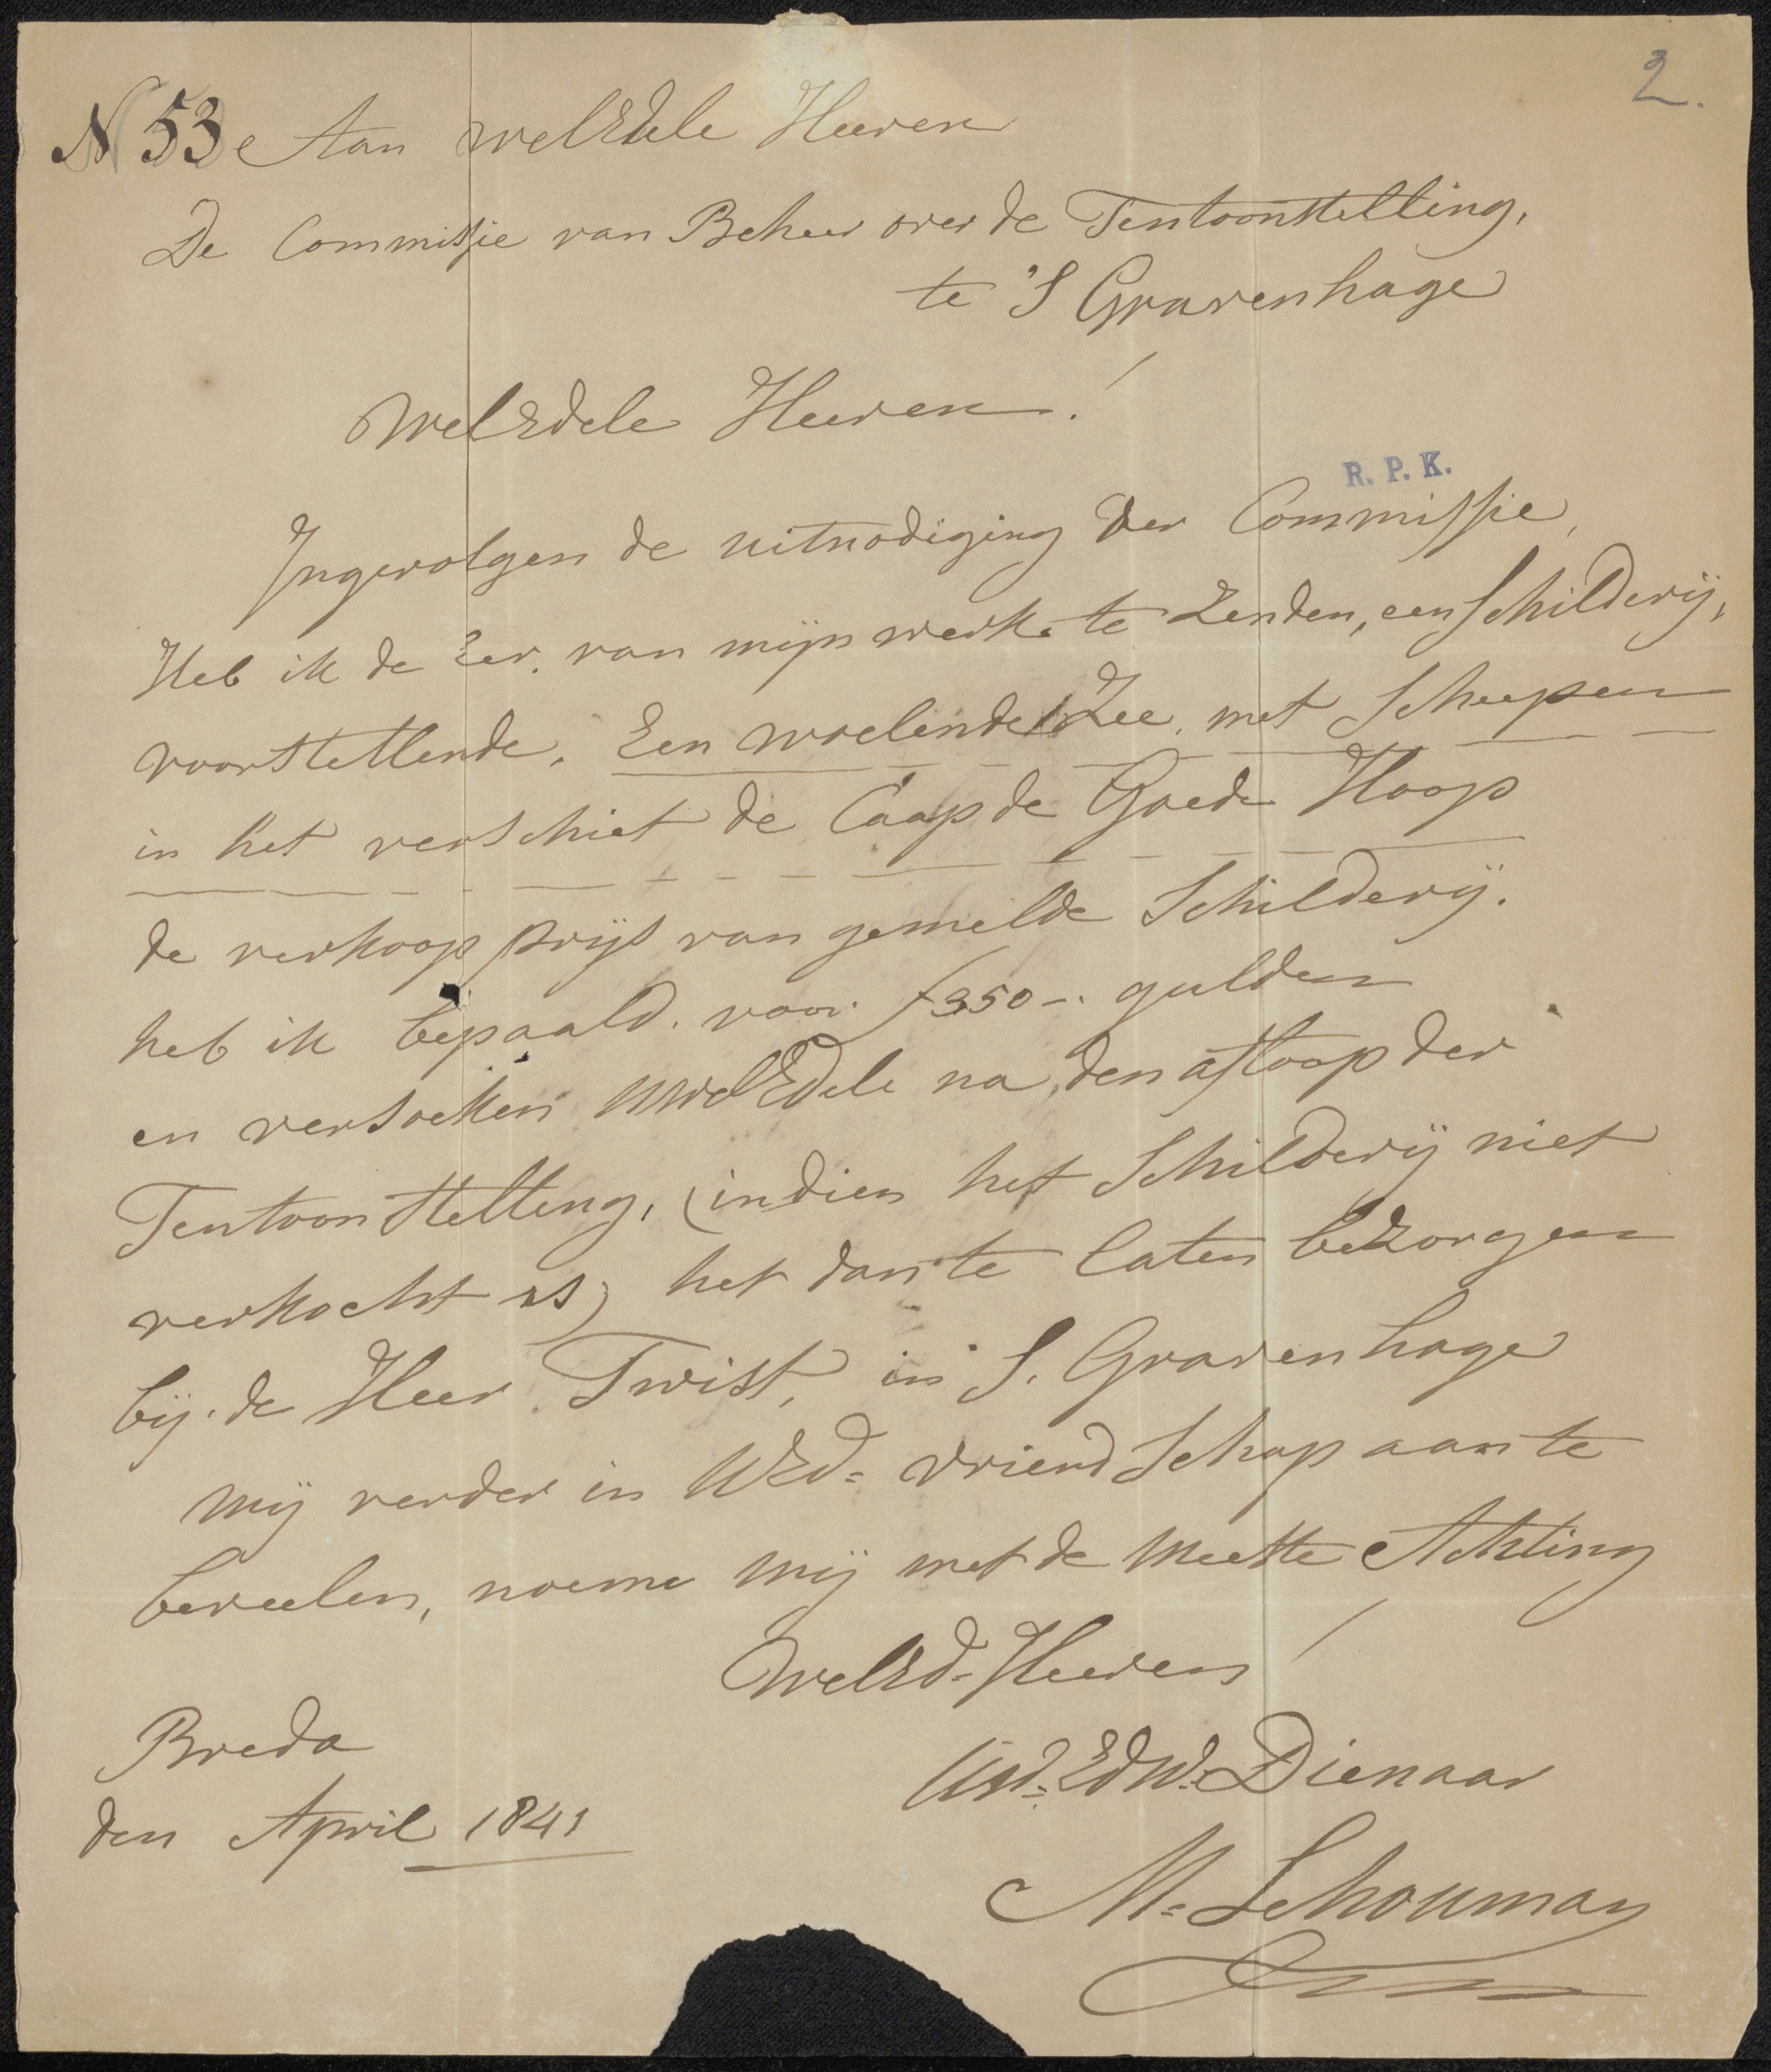 2.
N 53 Aan WelEdele Heeren
De Commissie van Beheer over de Tentoonstelling,
te 'S Gravenhage
WelEdele Heeren!
R. P. K.
Ingevolgen de uitnodiging der Commissie,
Heb ik de Eer. van mijn werk te Zenden, een Schilderij,
voorstellende. Een woelende Zee, met Scheepen
in het verschiet de Caap de Goede Hoop
de verkoop prijs van gemelde Schilderij.
heb ik bepaald. voor f 350 -. gulden
en versoeken UwelEdele na den afloop der
Tentoonstelling, (indien het Schilderij niet
verkocht is) het dan te laten beZorgen
bij de Heer Twist, in S. Gravenhage
mij verder in UEd= vriendschap aan te
beveelen, noeme mij met de meeste Achting
WelEd= Heeren!
EdW. Dienaar
M= Schouman
Breda
den April 1841